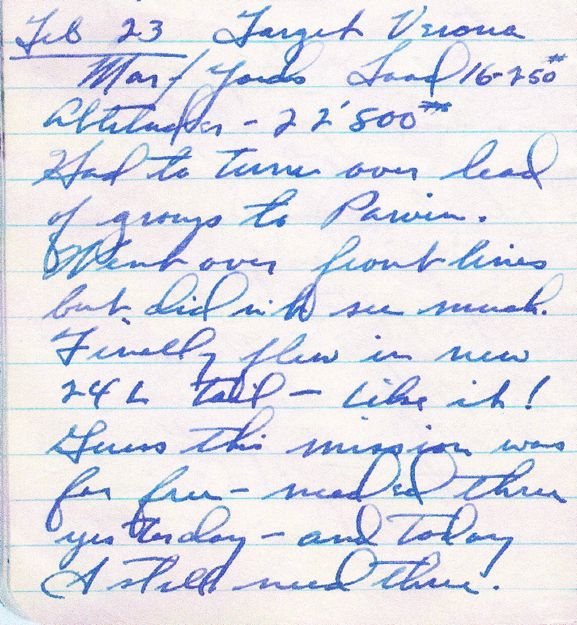 Feb 23 Target Verona
Mar/Yards Load 16-250#
Altitudes - 22'500
Had to turn over lead
of group to Parvin.
Went over front lines
but didn't see much.
Finally flew in new
24 L tail - Like it!
Guess this mission was
for free - needed three
yesterday - and today
I still need three.